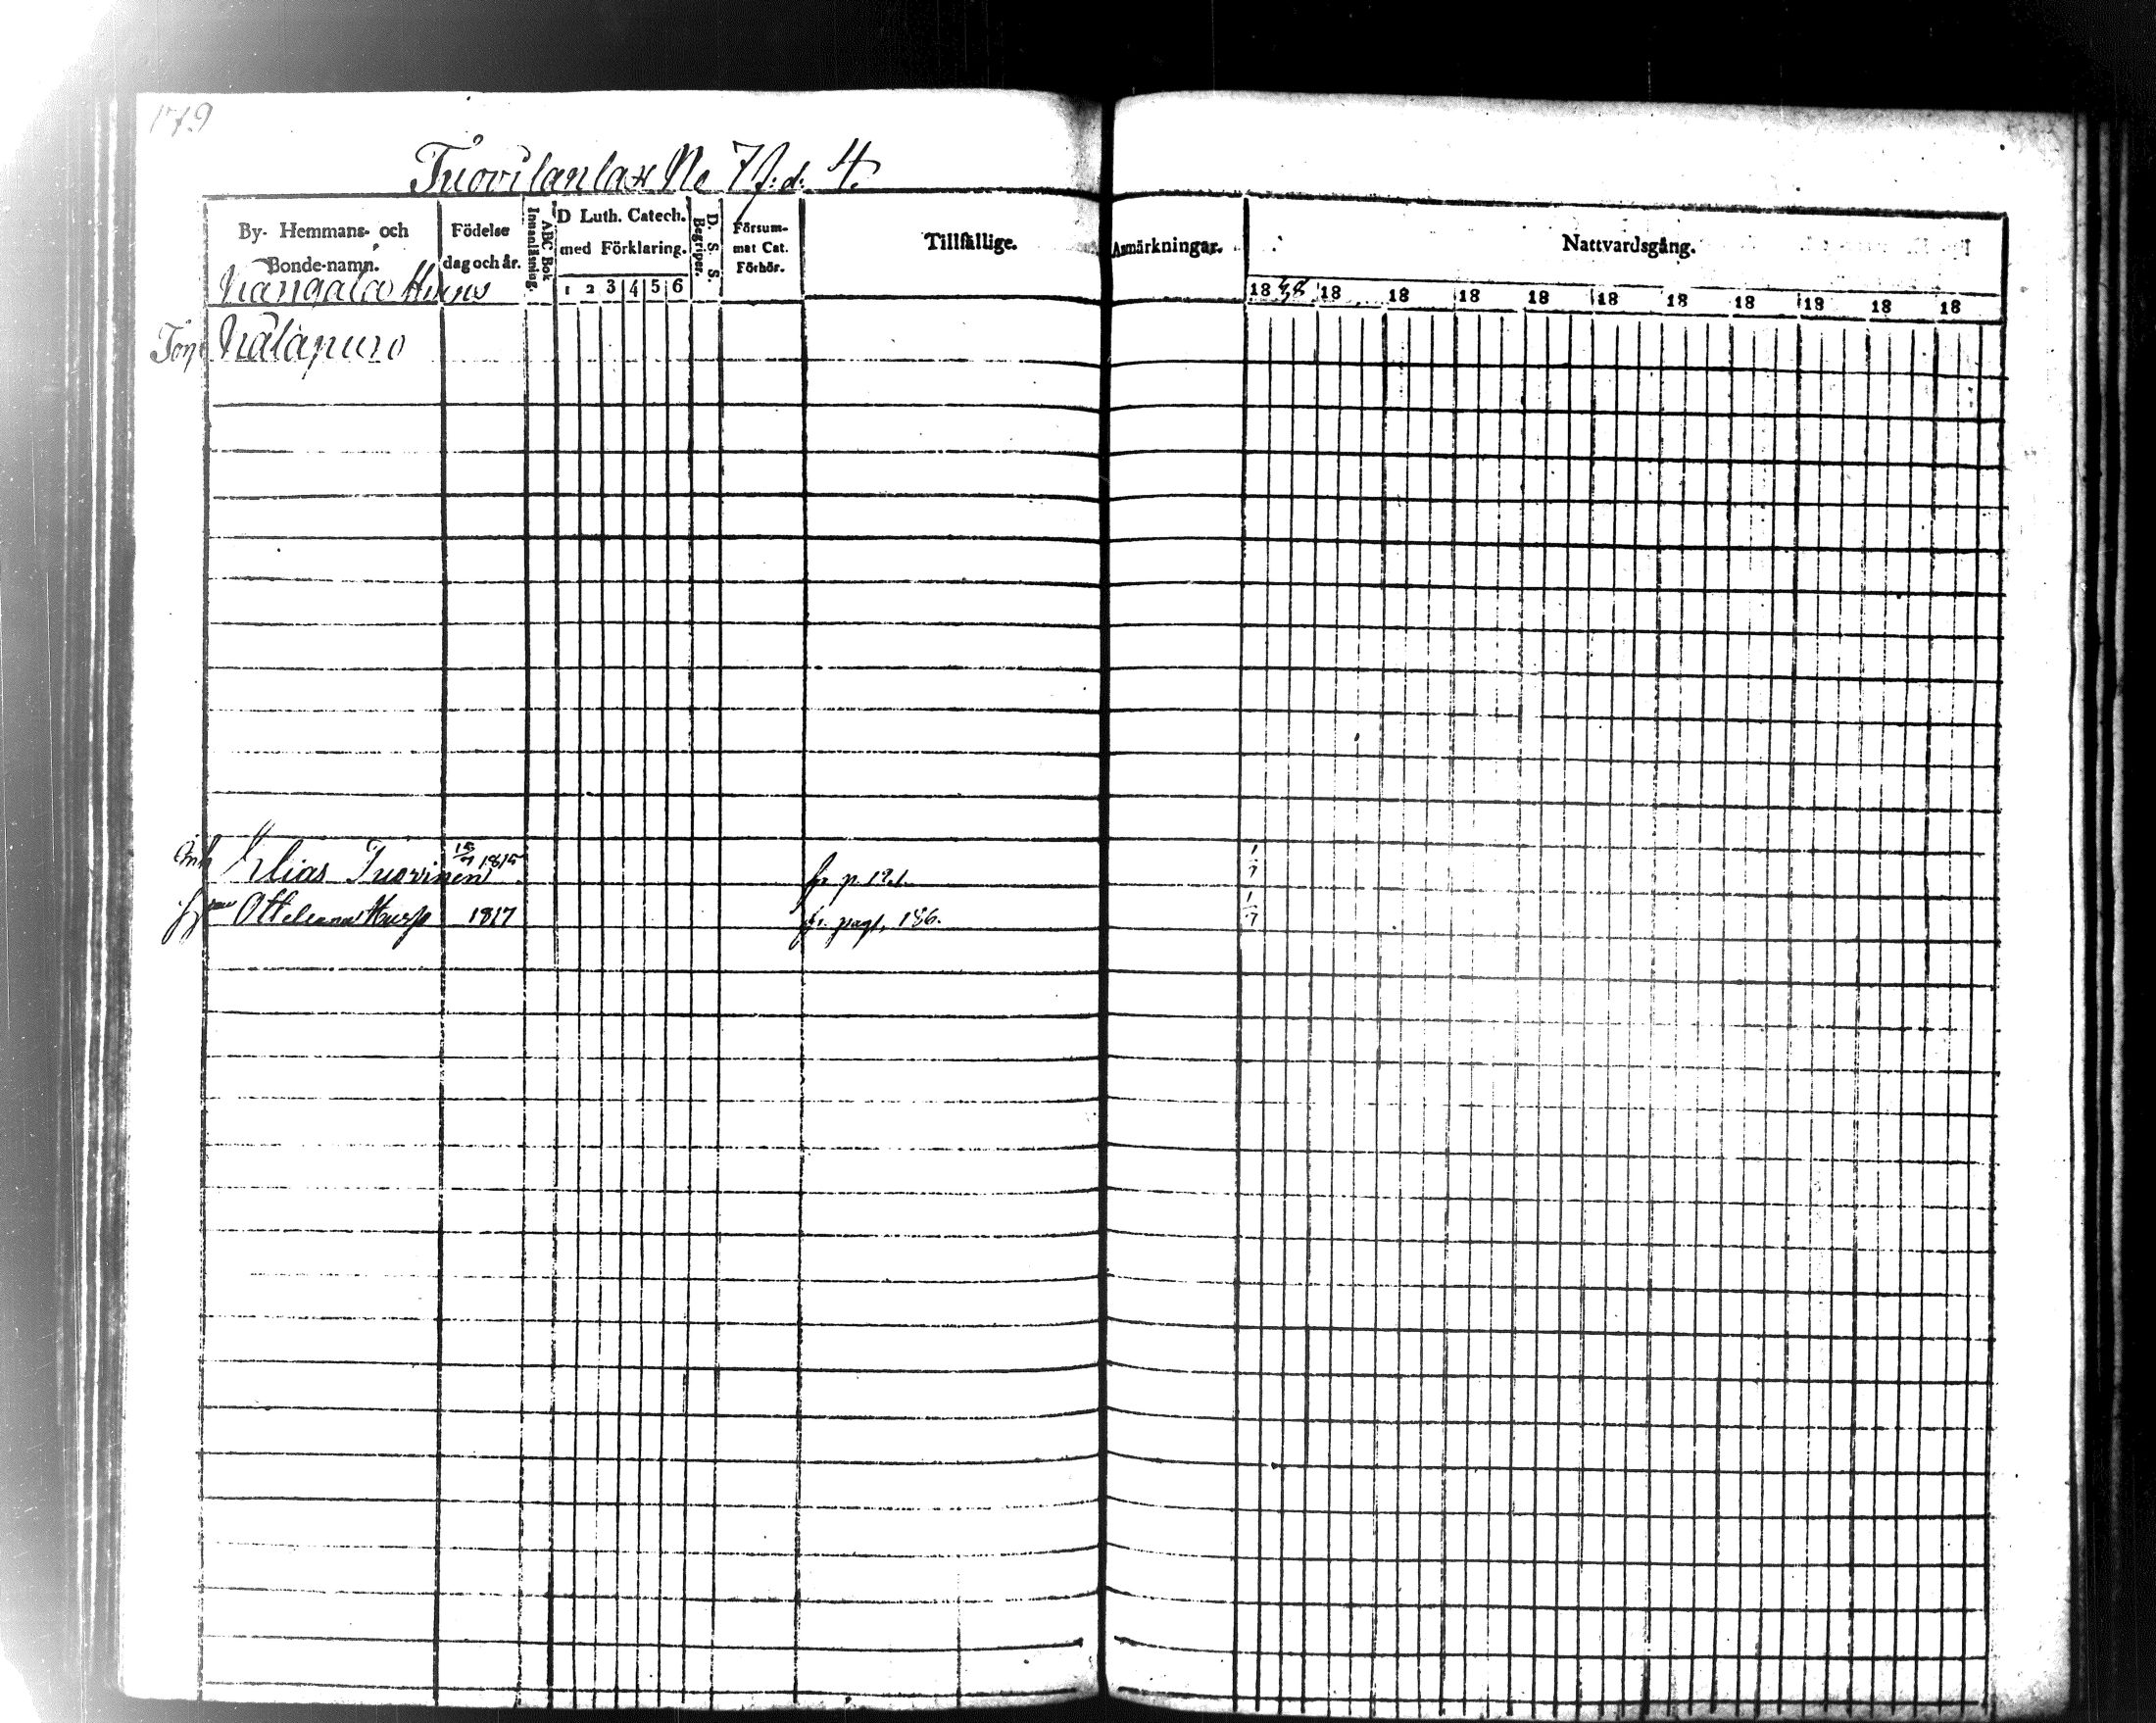 179
Tuovilanlax No 7 f. d. 4.
By- Hemmans- och Bonde-namn.
Födelse dag och år.
Innanläsning.
ABC Bok
D Luth. Catech. med Förklaring.
1 2 3 4 5 6
D. S. S.
Begriper.
Försummat Cat. Förhör.
Tillfällige.
Anmärkningar.
Nattvardsgång.
18 38 18 18 18 18 18 18 18 18 18 18
Kangala
Torp Kalapuro
Inh Elias Tuovinen 15/7 1815 fr p. 121. 1/7
1817 fr. pag. 186. 1/7